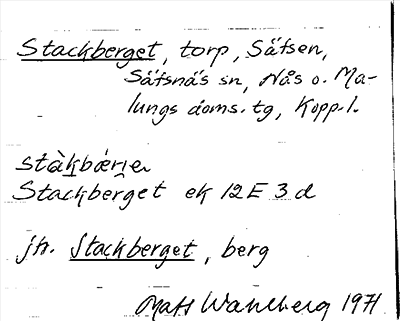 Stackberget, torp, Säfsen,
Säfsnäs sn, Nås o. Ma-
lungs doms. tg, Kopp. l.
stàkbærjen
Stackberget ek 12E 3d
jfr. Stackberget, berg
Mats Wahlberg 1971